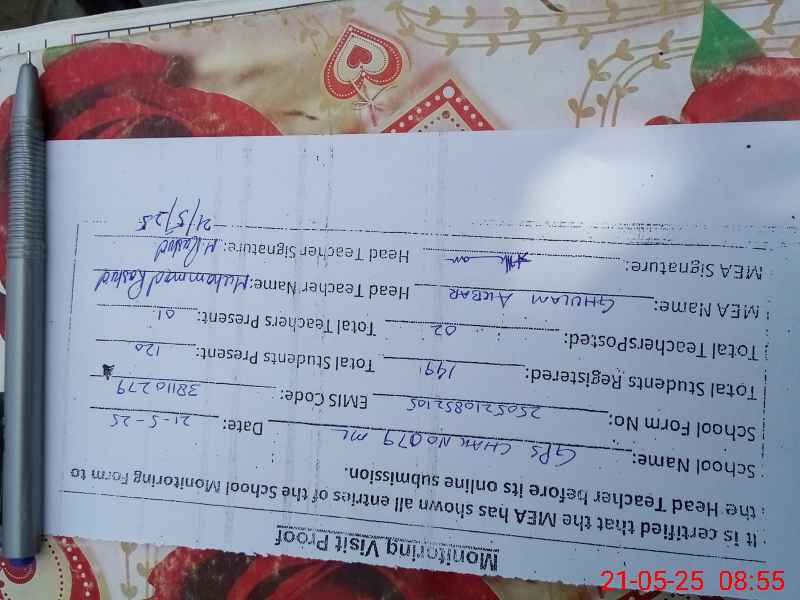 Monitoring Visit Proof
It is certified that the MEA has shown all entries of the School Monitoring Form to
the Head Teacher before its online submission.
School Name: GPS CHAK NO 079 ML Date: 21-5-25
School Form No: 2505210852105 EMIS Code: 38110279
Total Students Registered: 149 Total Students Present: 120
Total TeachersPosted: 02 Total Teachers Present: 01
MEA Name: GHULAM AKBAR Head Teacher Name: Muhammad Rashid
MEA Signature: Head Teacher Signature: M.Rashid
21/5/25
21-05-25 08:55